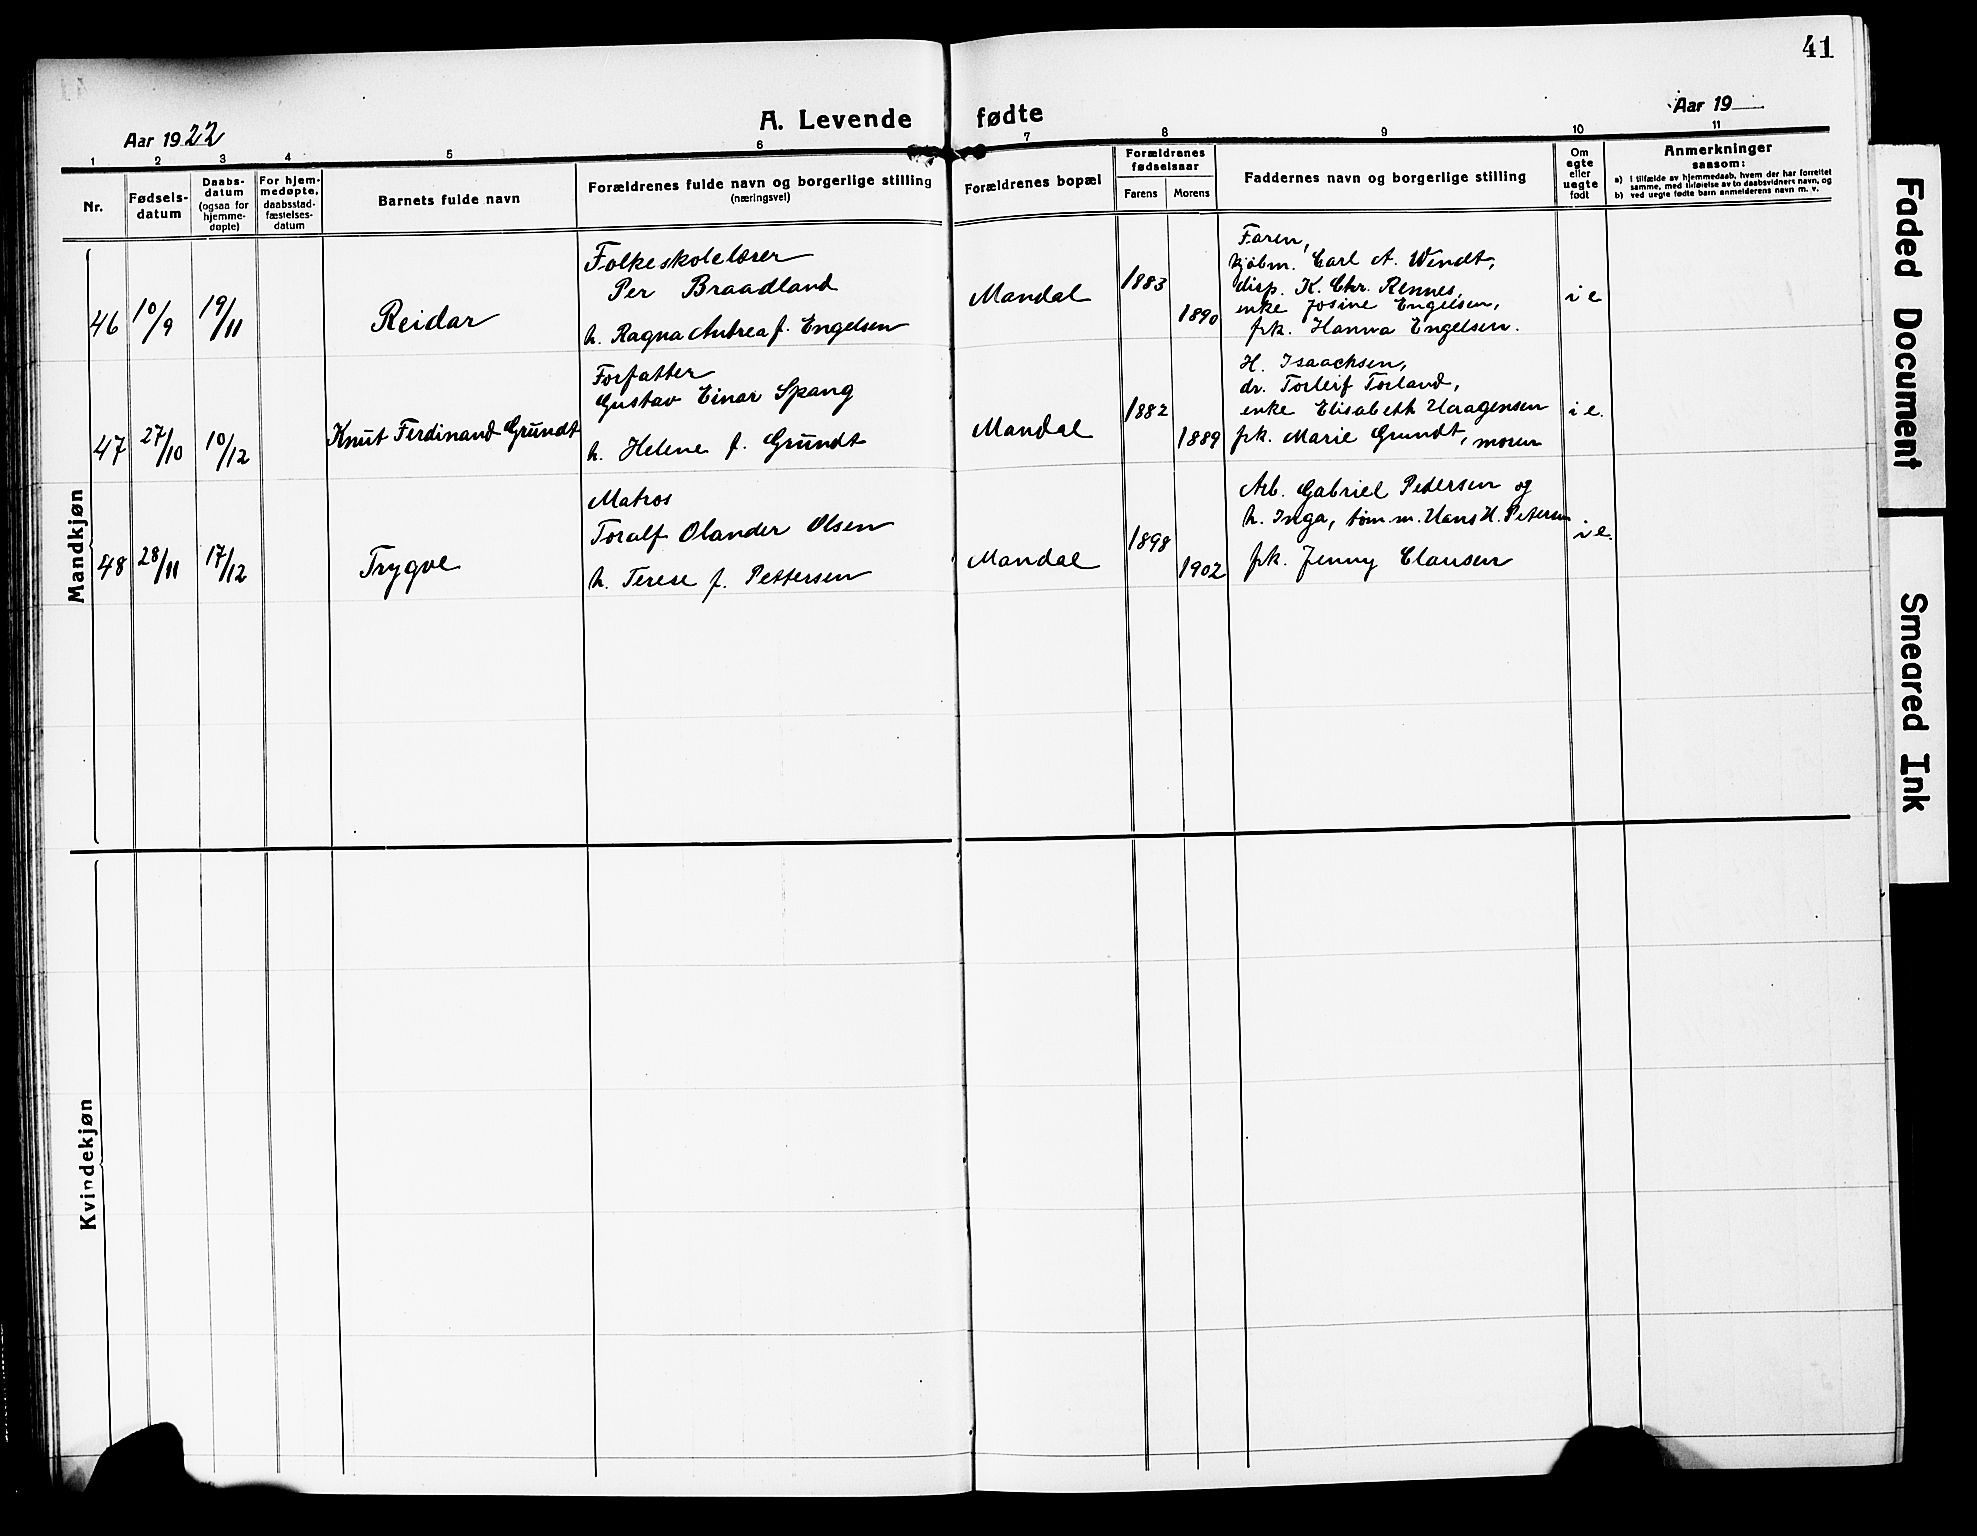 41
Aar 1922
A. Levende fødte
Aar 19
1 2 3 4 5 6 7 8 9 10 11
Nr.
Fødsels-
datum
Daabs-
datum
(ogsaa for
hjemme-
døpte)
For hjem-
medøpte,
daabsstad-
fæstelses-
datum
Barnets fulde navn
Forældrenes fulde navn og borgerlige stilling
(næringsvei)
Forældrenes bopæl
Forældrenes
fødselsaar
Farens Morens
Faddernes navn og borgerlige stilling
Om
egte
eller
uegte
født
Anmerkninger
saasom:
a) i tilfælde av hjemmedaab, hvem der har forrettet
samme, med tilføielse av to daabsvidners navn, og
b) ved uegte fødte barn anmelderens navn m. v.
Mandkjøn
46 10/9 19/11
Reidar
Folkeskolelærer
Per Braadland
h. Ragna Andrea f. Engelsen
Mandal
1883
1890
Faren,
kjøbm. Carl A. Wendt,
disp. K. Chr. Rennes,
enke Josine Engelsen,
frk. Hanna Engelsen.
i e
47 27/10 10/12
Knut Ferdinand Grundt
Forfatter
Gustav Einar Spang
h. Helene f. Grundt
Mandal
1882
1889
H. Isaachsen,
dr. Torleif Torland,
enke Elisabeth Haagensen
frk. Marie Grundt, moren
i e.
48 28/11 17/12
Trygve
Matros
Toralf Olander Olsen
h. Terese f. Pettersen
Mandal
1898
1902
Arb. Gabriel Pedersen og
h. Inga, tøm.m. Hans H. Petersen
frk. Jenny Clausen
i e.
Kvindekjøn
Faded Document
Smeared Ink